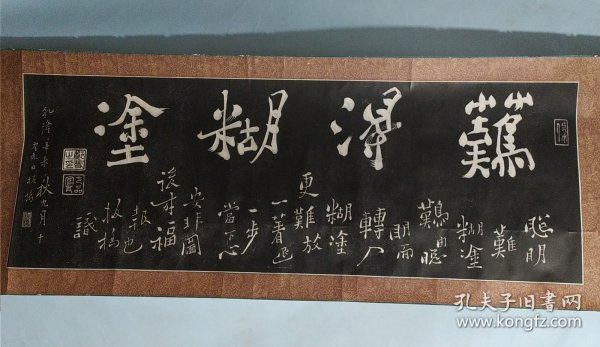 難得糊塗
聰明
難
糊塗
難由聰
明而
轉入
糊塗
更難放
一著退
一步
當下心
安非圖
後來福
報也
板橋
識
乾隆辛未秋九月
孔夫子旧書网
www.kongfz.com